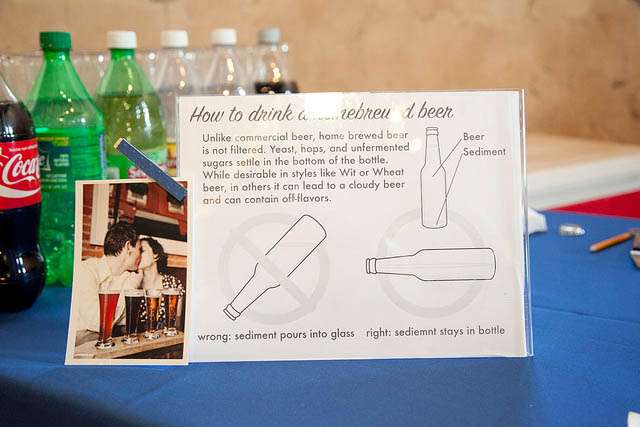 How to drink a homebrewed beer
Unlike commercial beer, home brewed beer
is not filtered. Yeast, hops, and unfermented
sugars settle in the bottom of the bottle.
While desirable in styles like Wit or Wheat
beer, in others it can lead to a cloudy beer
and can contain off-flavors.
Beer
Sediment
wrong: sediment pours into glass
right: sediemnt stays in bottle
Coca